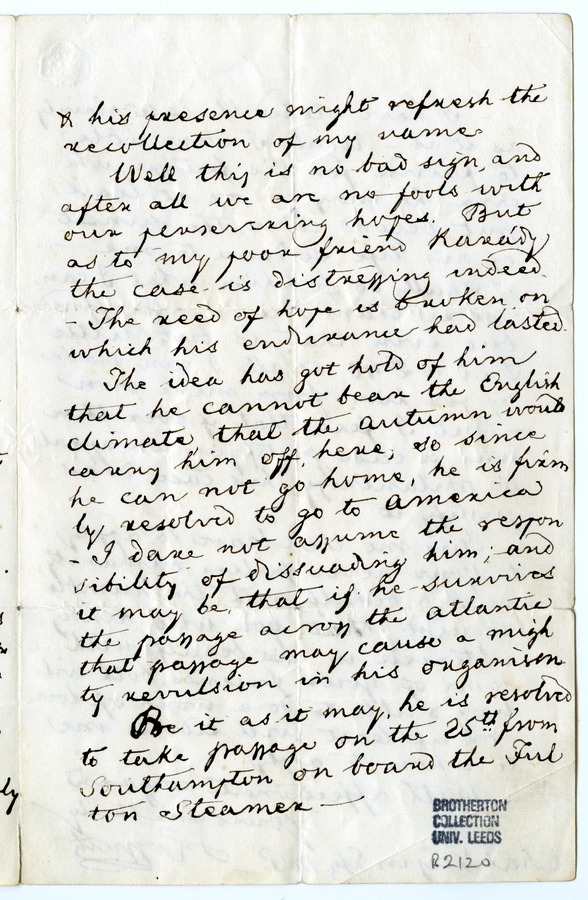 & his presence might refresh the
recollection of my name
Well this is no bad sign, and
after all we are no fools with
our persevering hopes. But
as to my poor friend Karády
the case is distressing indeed.
- The reed of hope is broken, on
which his endurance had lasted.
The idea has got hold of him
that he cannot bear the English
climate, that the autumn would
carry him off, here, so since
he can not go home, he is firm
ly resolved to go to America
- I dare not assume the respon
sibility of dissuading him; and
it may be, that if he survives
the passage across the atlantic
that passage may cause a migh
ty revulsion in his organism
Be it as it may, he is resolved
to take passage on the 25th from
Southampton on board the Ful
ton Steamer —
BROTHERTON
COLLECTION
UNIV. LEEDS
R2120
ly